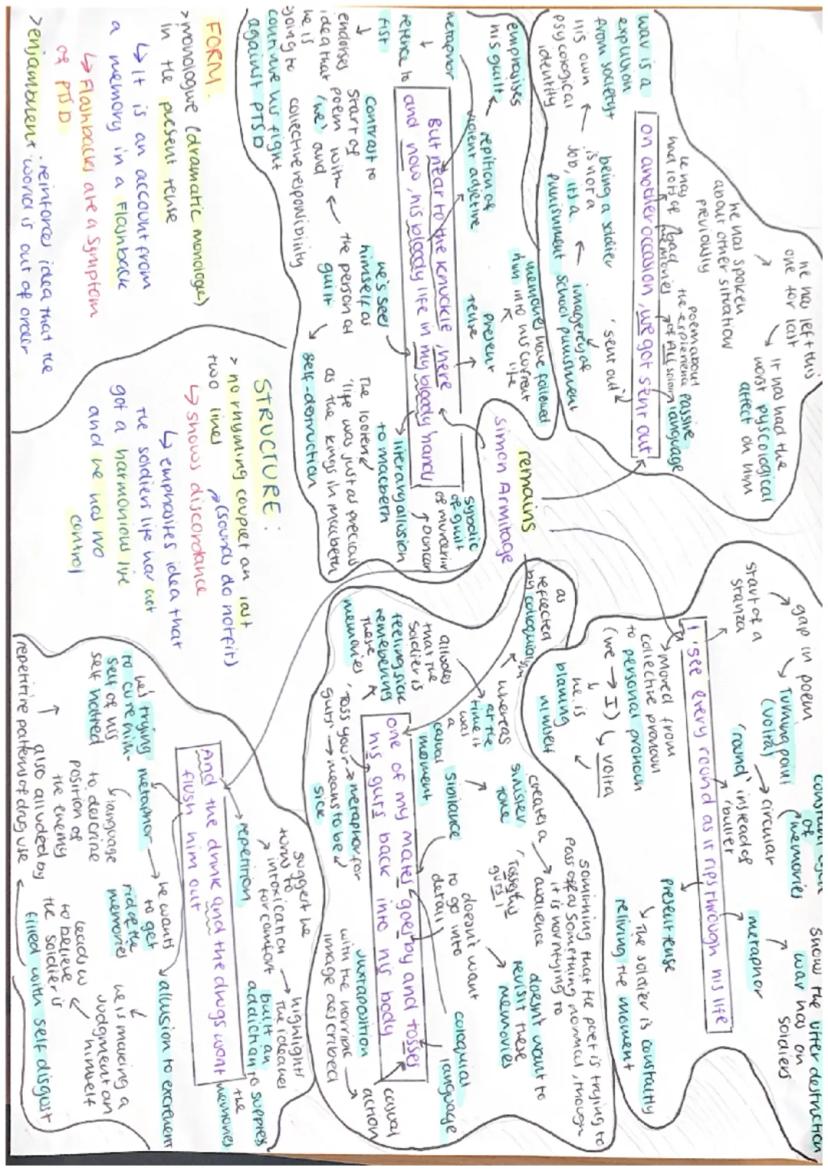 remains
simon Armitage
on another occasion, we got sent out
he has left this
one for last
It was had the
worst pyscological
affect on him
he has spoken
about other situation
previously
he has
had lots of bad
memories
Poem about
the experience
of all soldiers
passive
language
war is a
expulsion
from society
his own
psycological
identity
being a soldier
is not a
job, its a
punishment
imagery of
school punishment
'sent out'
But near to the knuckle, here
and now, his bloody life in my bloody hands
emphasises
his guilt
repition of
violent adjective
present
tense
memories have followed
him into his current
life
metaphor
refence to
fist
endorses
idea that
he is
going to
continue his fight
against PTSD
contrast to
start of
poem with
'we' and
collective responsibility
he's sees
himself as
the person at
guilt
self-destruction
literary allusion
to macbeth
The looters
'life was just as precious
as the kings in macbeth
sybolic
of guilt
of murdering
Duncan
FORM:
>monologue (dramatic monologue)
in the present tense
↳ It is an account from
a memory in a Flashback
↳ Flashbacks are a symptom
of PTSD
>enjambment: reinforces idea that the
world is out of order
STRUCTURE:
> no rhyming couplet on last
two lines
(sounds do not fit)
↳ shows discordance
↳ emphasises idea that
the soldiers life has not
got a harmonious live
and he has no
control
I see every round as it rips through his life
gap in poem
start of a
stanza
Turning point
(volta)
circular
'round' instead of
bullet
of
memories
show the utter destruction
war has on
soldiers
metaphor
present tense
↳ the soldier is constantly
reliving the moment
moved from
collective pronoun
to personal pronoun
(we → I) ↳ volta
he is
blaming
himself
one of my mates goes by and tosses
his guts back into his body
as
reflected
by colloquialism
whereas
at the
time it
was
a
casual
moment
alludes
that the
soldier is
feeling sick
remebering
these
memories
'toss your
guts' → means to be
sick
metaphor for
sibilance
sinister
tone
creates a
'tosses his
guts'
audience
doesn't want to
revisit these
memories
doesn't want
to go into
detail
Something that the poet is trying to
pass of a something normal, though
it is horrifying to
colloquial
language
casual
action
juxtaposition
with the horrific
image described
And the drink and the drugs wont
flush him out
repetition
suggest he
turns to
intoxication
for comfort
highlights
the idea hes
built an
addiction to suppress
the
memories
metaphor
↳ language
to describe
position of
the enemy
he's trying
to cure him-
self of his
self hatred
he wants
to get
rid of the
memories
allusion to excrement
he is making a
judgment on
himself
leads us
to believe
the soldier is
filled with self disgust
also alluded by
repetitive patterns of drug use